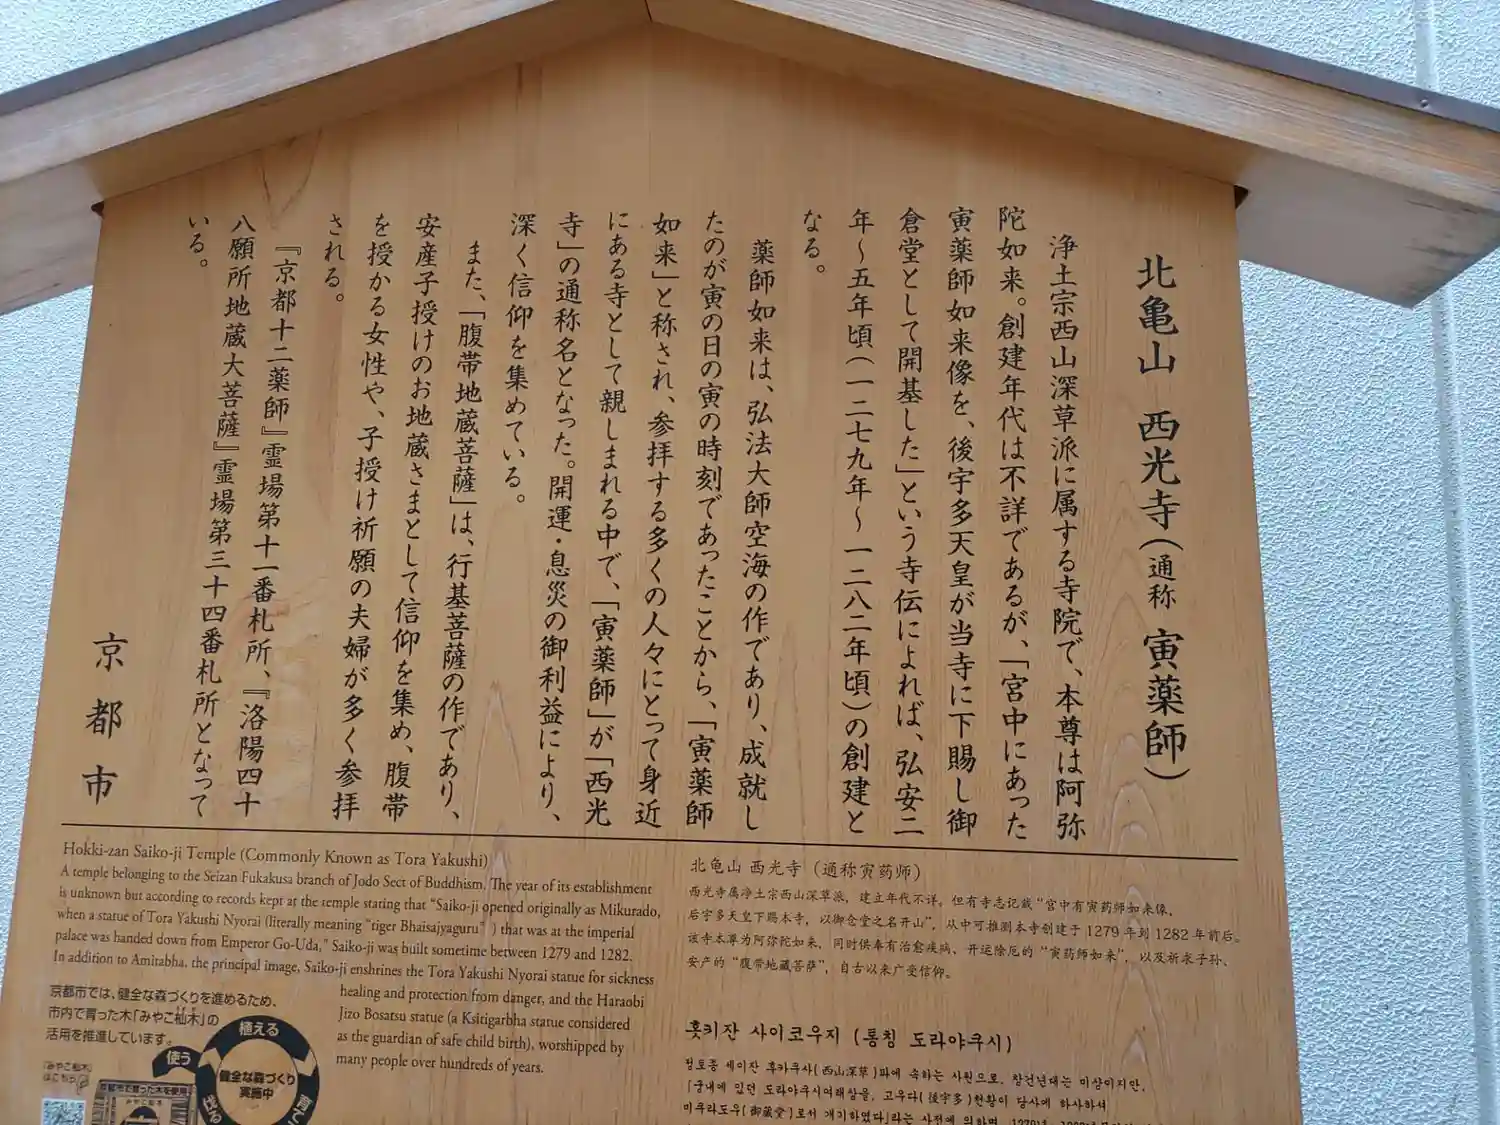 北亀山　西光寺（通称　寅薬師）
浄土宗西山深草派に属する寺院で、本尊は阿弥
陀如来。創建年代は不詳であるが、「宮中にあった
寅薬師如来像を、後宇多天皇が当寺に下賜し御
倉堂として開基した」という寺伝によれば、弘安二
年～五年頃（一二七九年～一二八二年頃）の創建と
なる。
薬師如来は、弘法大師空海の作であり、成就し
たのが寅の日の寅の時刻であったことから、「寅薬師
如来」と称され、参拝する多くの人々にとって身近
にある寺として親しまれる中で、「寅薬師」が「西光
寺」の通称名となった。開運・息災の御利益により、
深く信仰を集めている。
また、「腹帯地蔵菩薩」は、行基菩薩の作であり、
安産子授けのお地蔵さまとして信仰を集め、腹帯
を授かる女性や、子授け祈願の夫婦が多く参拝
される。
『京都十二薬師』霊場第十一番札所、『洛陽四十
八願所地蔵大菩薩』霊場第三十四番札所となって
いる。
京都市
Hokki-zan Saiko-ji Temple (Commonly Known as Tora Yakushi)
A temple belonging to the Seizan Fukakusa branch of Jodo Sect of Buddhism. The year of its establishment
is unknown but according to records kept at the temple stating that “Saiko-ji opened originally as Mikurado,
when a statue of Tora Yakushi Nyorai (literally meaning “tiger Bhaisajyaguru” ) that was at the imperial
palace was handed down from Emperor Go-Uda,” Saiko-ji was built sometime between 1279 and 1282.
In addition to Amitabha, the principal image, Saiko-ji enshrines the Tora Yakushi Nyorai statue for sickness
healing and protection from danger, and the Haraobi
Jizo Bosatsu statue (a Ksitigarbha statue considered
as the guardian of safe child birth), worshipped by
many people over hundreds of years.
京都市では、健全な森づくりを進めるため、
市内で育った木「みやこ杣木」の
活用を推進しています。
「みやこ杣木」
はこちら
植える
使う
育てる
伐る
健全な森づくり
実施中
京都市で育った木を使用
北龟山 西光寺（通称寅药师）
西光寺属净土宗西山深草派，建立年代不详。但有寺志记载“宫中有寅药师如来像，
后宇多天皇下赐本寺，以御仓堂之名开山”，从中可推测本寺创建于 1279 年到 1282 年前后。
该寺本尊为阿弥陀如来，同时供奉有治愈疾病、开运除厄的“寅药师如来”，以及祈求子孙、
安产的“腹带地藏菩萨”，自古以来广受信仰。
홋키잔 사이코우지 (통칭 도라야쿠시)
정토종 세이잔 후카쿠사(西山深草)파에 속하는 사원으로, 창건년대는 미상이지만,
「궁내에 있던 도라야쿠시여래상을, 고우다(後宇多)천황이 당사에 하사하셔
미쿠라도우(御蔵堂)로서 개기하였다」라는 사전에 의하면,